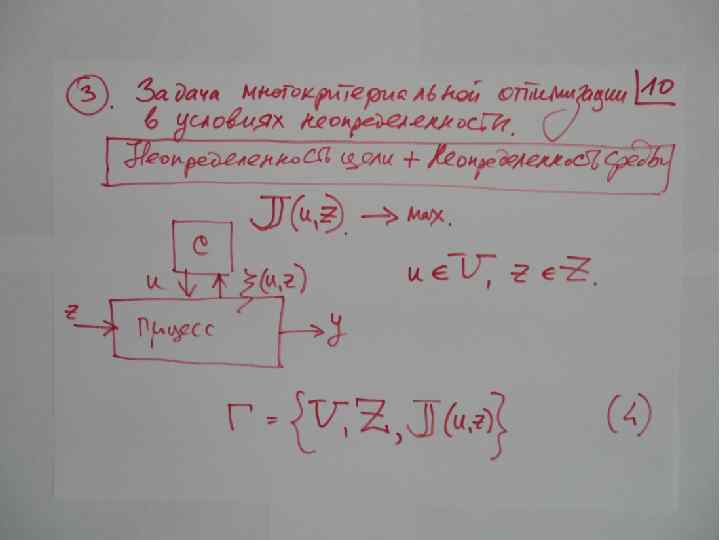 3. Задача многокритериальной оптимизации 10
в условиях неопределенности.
Неопределенность цели + Неопределенность среды
J(u,z). → max.
C
u ξ(u,z) u ∈ U, z ∈ Z.
z Процесс y
Γ = {U, Z, J(u,z)} (4)